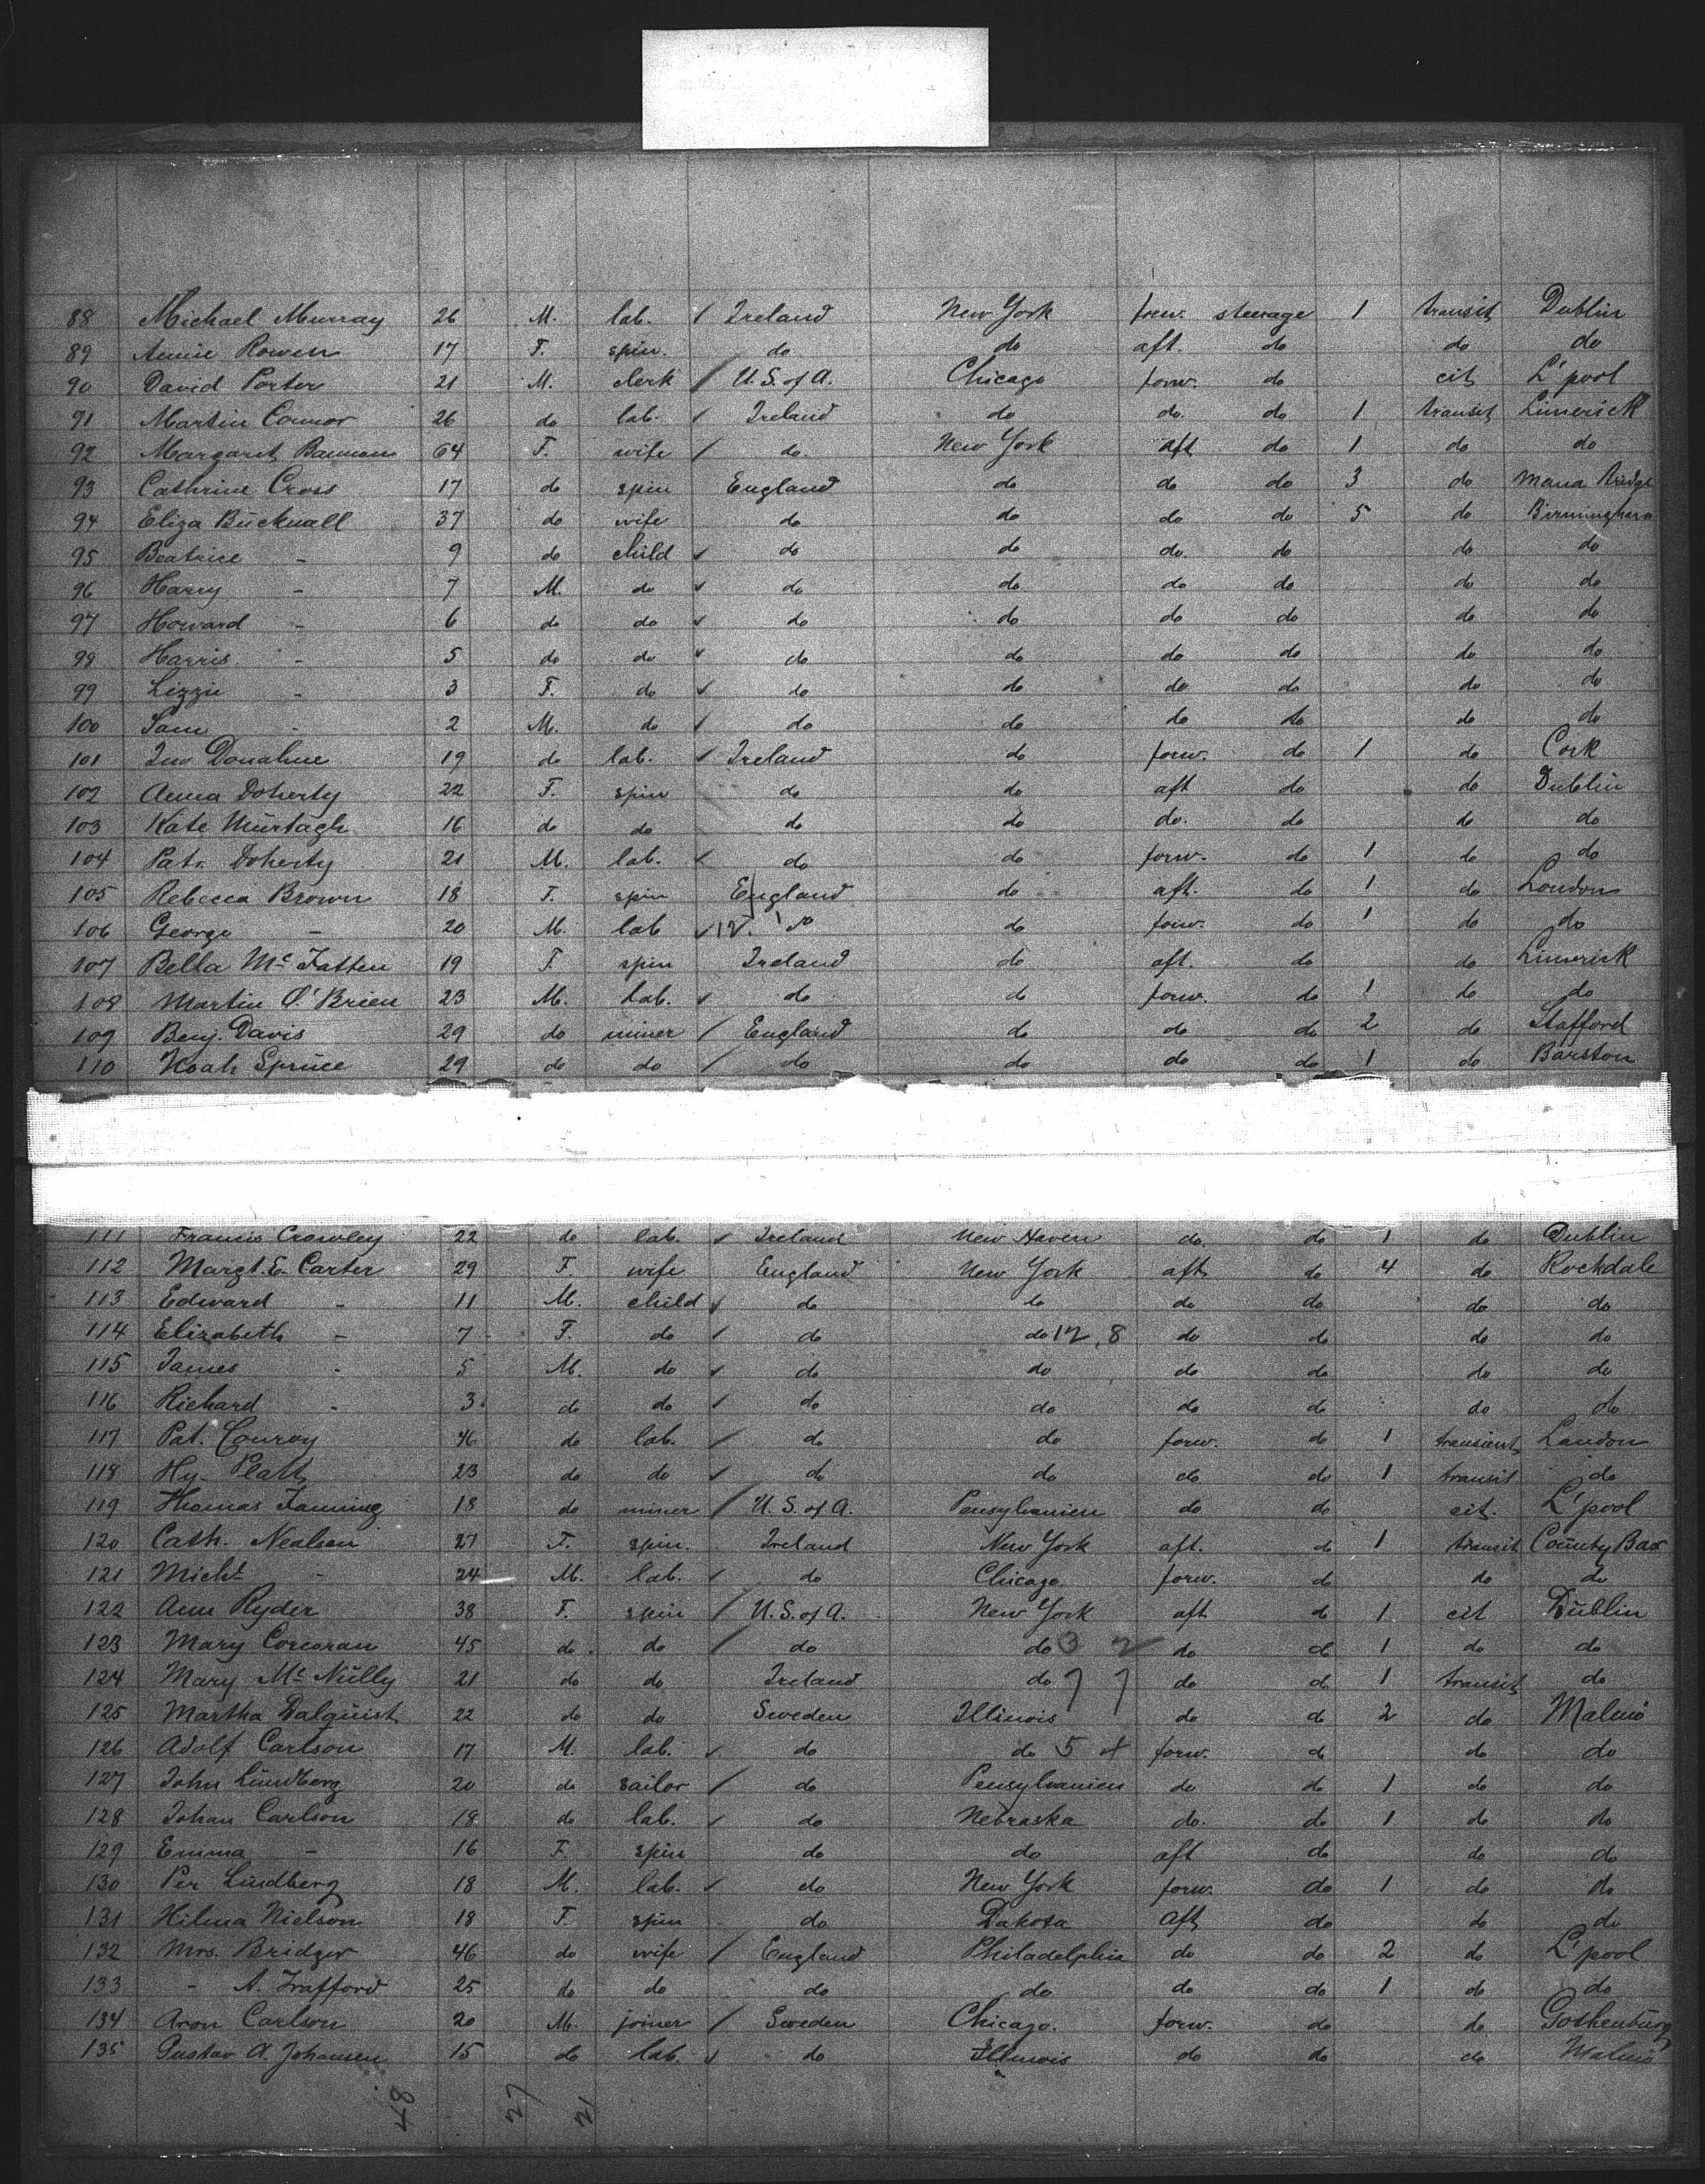 88 Michael Murray 26 M. lab. / Ireland New York forw. steerage 1 transit Dublin
89 Annie Rowen 17 F. spin. do do aft. do do do
90 David Porter 21 M. clerk / U.S. of A. Chicago forw. do cit L'pool
91 Martin Connor 26 do lab. / Ireland do do. do 1 transit Limerick
92 Margaret Bannon 64 F. wife / do. New York aft do 1 do do
93 Cathrine Cross 17 do spin England do do do 3 do
94 Eliza Bucknall 37 do wife do do do do 5 do Birmingham
95 Beatrice - 9 do child ✓ do do do. do do do
96 Harry - 7 M. do ✓ do do. do do do do
97 Howard - 6 do do ✓ do do do do do do
99 Harris. - 5 do do ✓ do do do do do do
99 Lizzie - 3 F. do ✓ do do do do do do
100 Sam - 2 M. do ✓ do do do do do do
101 Jno Donahue 19 do lab. ✓ Ireland do forw. do 1 do Cork
102 Anna Doherty 22 F. spin do do aft do do Dublin
103 Kate Murtagh 16 do do do do do. do do do
104 Patr. Doherty 21 M. lab. ✓ do do forw. do 1 do do
105 Rebecca Brown 18 F. spin England do aft. do 1 do London
106 George - 20 M. lab ✓ do do forw. do 1 do do
107 Bella Mc Fatten 19 F. spin Ireland do aft. do do Limerick
108 Martin O'Brien 23 M. lab. ✓ do do forw. do 1 do do
109 Benj. Davis 29 do miner / England do do do 2 do Stafford
110 Noah Spruce 29 do do / do do do do 1 do Barston
111 Francis Crowley 22 do lab. ✓ Ireland New Haven do. do 1 do Dublin
112 Margt. E. Carter 29 F. wife England New York aft do 4 do Rockdale
113 Edward - 11 M. child ✓ do do do do do do
114 Elizabeth - 7 F. do ✓ do do 12,8 do do do do
115 James - 5 M. do ✓ do do do do do do
116 Richard - 3 do do ✓ do do do do do do
117 Pat. Conroy 46 do lab. / do do forw. do 1 transient London
118 Hy. Platt 23 do do ✓ do do do do 1 transit do
119 Thomas Fanning 18 do miner / U.S. of A. Pensylvanien do do cit. L'pool
120 Cath. Nealien 27 F. spin. Ireland New York aft. do 1 transit County Bax
121 Michl. - 24 M. lab. ✓ do Chicago. forw. do do do
122 Ann Ryder 38 F. spin / U.S. of A. New York aft do 1 cit Dublin
123 Mary Corcoran 45 do. do / do do 3 2 do do 1 do do
124 Mary Mc Nully 21 do do Ireland do 7 7 do do 1 transit do
125 Martha Dalquist 22 do do Sweden Illinois do do 2 do Malmö
126 Adolf Carlson 17 M. lab. ✓ do do 5 4 forw. do do do
127 John Lundberg 20 do sailor / do Pensylvanien do do 1 do do
128 Johan Carlson 18 do lab. ✓ do Nebraska do. do 1 do do
129 Emma - 16 F. spin do do aft do do do
130 Per Lindberg 18 M. lab. ✓ do New York forw. do 1 do do
131 Hilma Nielson 18 F. spin do Dakota aft do do do
132 Mrs. Bridger 46 do wife / England Philadelphia do do 2 do L'pool
133 - A. Trafford 25 do do do do do do 1 do do
134 Aron Carlson 20 M. joiner / Sweden Chicago. forw. do do. Gothenburg
135 Gustav A. Johansen 15 do lab. ✓ do Illinois do do do Malmö
48 27 21